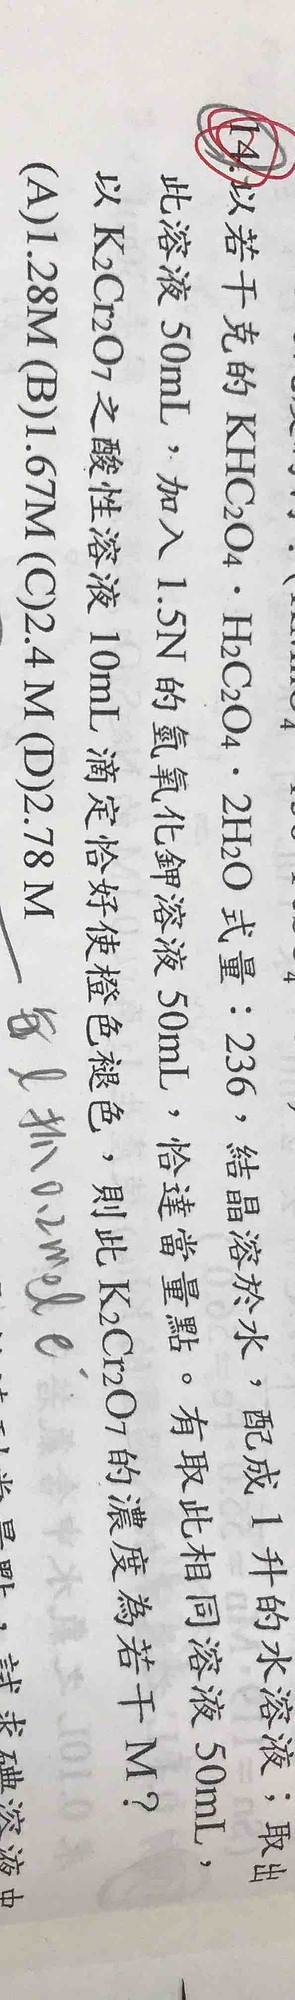 14.以若干克的 KHC₂O₄.H₂C₂O₄.2H₂O 式量：236，結晶溶於水，配成 1 升的水溶液；取出
此溶液 50mL，加入 1.5N 的氫氧化鉀溶液 50mL，恰達當量點。有取此相同溶液 50mL，
以 K₂Cr₂O₇ 之酸性溶液 10mL 滴定恰好使橙色褪色，則此 K₂Cr₂O₇ 的濃度為若干 M？
(A)1.28M (B)1.67M (C)2.4 M (D)2.78 M
0.2mol e⁻
試求碘溶液中